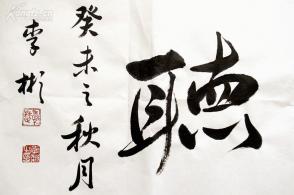 聽
癸未之秋月
李彬